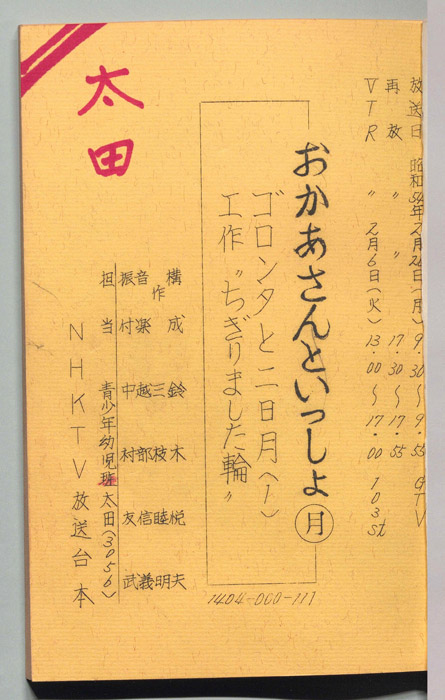 放送日 昭和54年2月26日(月) 9.30〜 GTV
再放 〃 〃 17.30〜17.55
VTR 〃 2月6日(火) 13.00〜17.00 103st
おかあさんといっしょ ㊊
ゴロンタと二日月(1)
工作 "ちぎりました輪"
1404-000-111
構成 鈴木悦夫
作 三枝睦明
音楽 越部信義
振付 中村友武
担当 青少年幼児班 太田(3056)
NHKTV放送台本
太田